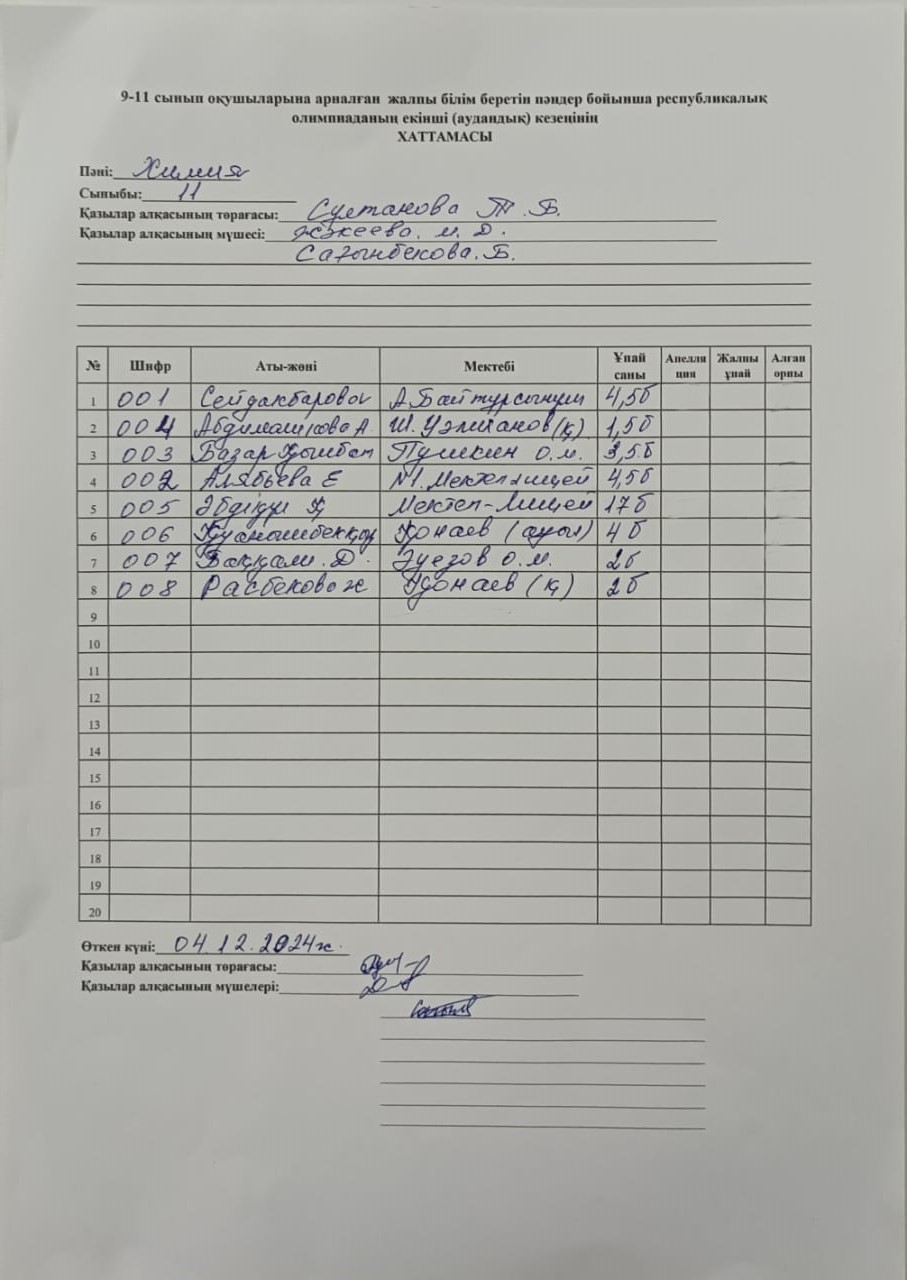 9-11 сынып оқушыларына арналған жалпы білім беретін пәндер бойынша республикалық
олимпиаданың екінші (аудандық) кезеңінің
ХАТТАМАСЫ
Пәні: Химия
Сыныбы: 11
Қазылар алқасының төрағасы: Султанова Т.Б.
Қазылар алқасының мүшесі: Жэкеева. М. Д.
Сағынбекова. Б.
№ Шифр Аты-жөні Мектебі Ұпай саны Апелляция Жалпы ұпай Алған орны
1 001 А.Байтурсынұлы 4,5б
2 004 Ш.Уәлиханов (қ) 1,5б
3 003 Базар Қымбат Пушкин о.м. 3,5б
4 002 Алябьева Е №1. Мектеп лицей 4,5б
5 005 Әбдіқұл Қ Мектеп-Лицей 17б
6 006 Қонаев (ауыл) 4б
7 007 Баққали. Д. Әуезов о.м. 2б
8 008 Расбекова Ж Қонаев (қ) 2б
9
10
11
12
13
14
15
16
17
18
19
20
Өткен күні: 04.12.2024ж.
Қазылар алқасының төрағасы:
Қазылар алқасының мүшелері: